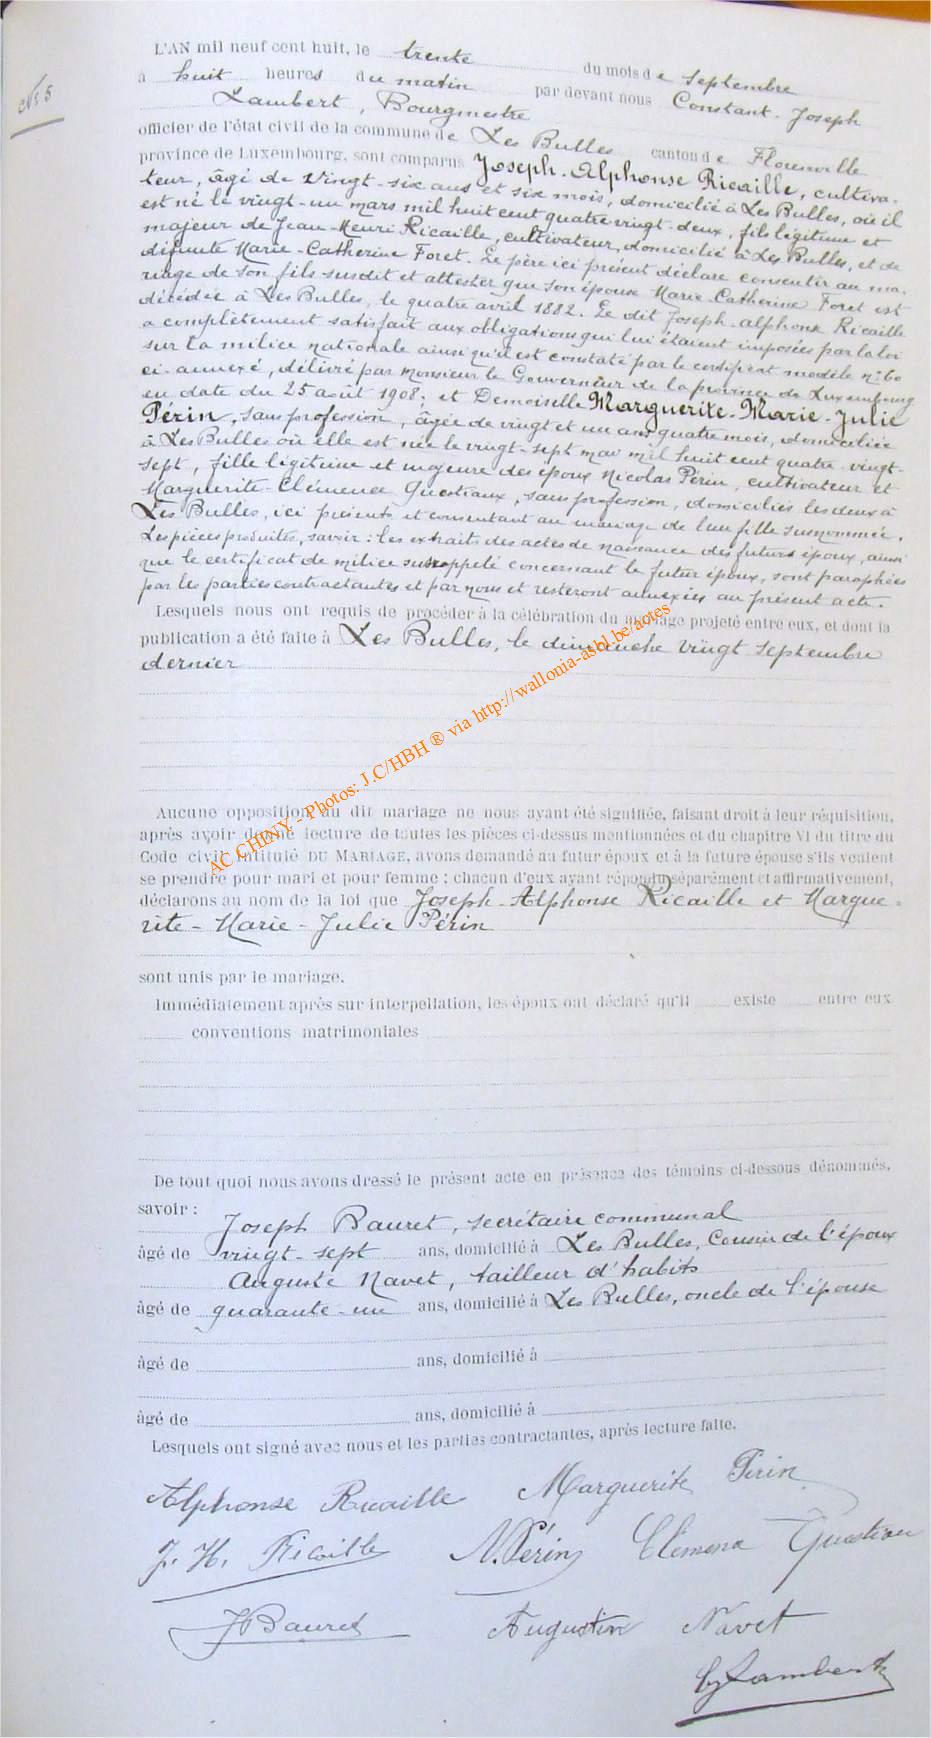 N° 5
L'AN mil neuf cent huit, le trente du mois de septembre
à huit heures du matin par devant nous Constant-Joseph
Lambert, Bourgmestre
officier de l'état civil de la commune de Les Bulles canton de Florenville
province de Luxembourg, sont comparus Joseph-Alphonse Ricaille, cultiva-
teur, âgé de vingt-six ans et six mois, domicilié à Les Bulles, où il
est né le vingt-un mars mil huit cent quatre vingt-deux, fils légitime et
majeur de Jean-Henri Ricaille, cultivateur, domicilié à Les Bulles, et de
défunte Marie-Catherine Foret. Le père ici présent déclare consentir au ma-
riage de son fils susdit et attester que son épouse Marie-Catherine Foret est
décédée à Les Bulles, le quatre avril 1882. Le dit Joseph-Alphonse Ricaille
a complètement satisfait aux obligations qui lui étaient imposées par la loi
sur la milice nationale ainsi qu'il est constaté par le certificat modèle n° 60
ci-annexé, délivré par Monsieur le Gouverneur de la province de Luxembourg
en date du 25 août 1908; et Demoiselle Marguerite-Marie-Julie
Périn, sans profession, âgée de vingt et un ans quatre mois, domiciliée
à Les Bulles où elle est née le vingt-sept mai mil huit cent quatre-vingt-
sept, fille légitime et majeure des époux Nicolas Périn, cultivateur et
Marguerite-Clémence Questiaux, sans profession, domiciliés les deux à
Les Bulles, ici présents et consentant au mariage de leur fille susnommée.
Les pièces produites, savoir: les extraits des actes de naissance des futurs époux, ainsi
que le certificat de milice susrappelé concernant le futur époux, sont paraphées
par les parties contractantes et par nous et resteront annexées au présent acte.
Lesquels nous ont requis de procéder à la célébration du mariage projeté entre eux, et dont la
publication a été faite à Les Bulles, le dimanche vingt septembre
dernier
AC CHINY - Photos: J.C/HBH ® via http://wallonia-asbl.be/actes
Aucune opposition au dit mariage ne nous ayant été signifiée, faisant droit à leur réquisition,
après avoir donné lecture de toutes les pièces ci-dessus mentionnées et du chapitre VI du titre du
Code civil intitulé DU MARIAGE, avons demandé au futur époux et à la future épouse s'ils veulent
se prendre pour mari et pour femme; chacun d'eux ayant répondu séparément et affirmativement,
déclarons au nom de la loi que Joseph-Alphonse Ricaille et Margue-
rite-Marie-Julie Périn
sont unis par le mariage.
Immédiatement après sur interpellation, les époux ont déclaré qu'il existe entre eux
conventions matrimoniales
De tout quoi nous avons dressé le présent acte en présence des témoins ci-dessous dénommés,
savoir:
Joseph Bauret, secrétaire communal
âgé de vingt-sept ans, domicilié à Les Bulles, cousin de l'époux
Auguste Navet, tailleur d'habits
âgé de quarante-un ans, domicilié à Les Bulles, oncle de l'épouse
âgé de ans, domicilié à
âgé de ans, domicilié à
Lesquels ont signé avec nous et les parties contractantes, après lecture faite.
Alphonse Ricaille Marguerite Périn
J. H. Ricaille N. Périn Clémence Questiau
J Bauret Augustin Navet
CJ Lambert